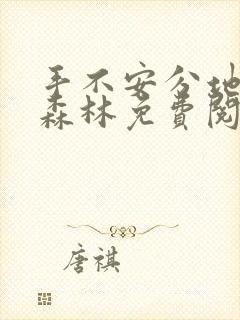 手不安分地
森林免费阅
唐祺